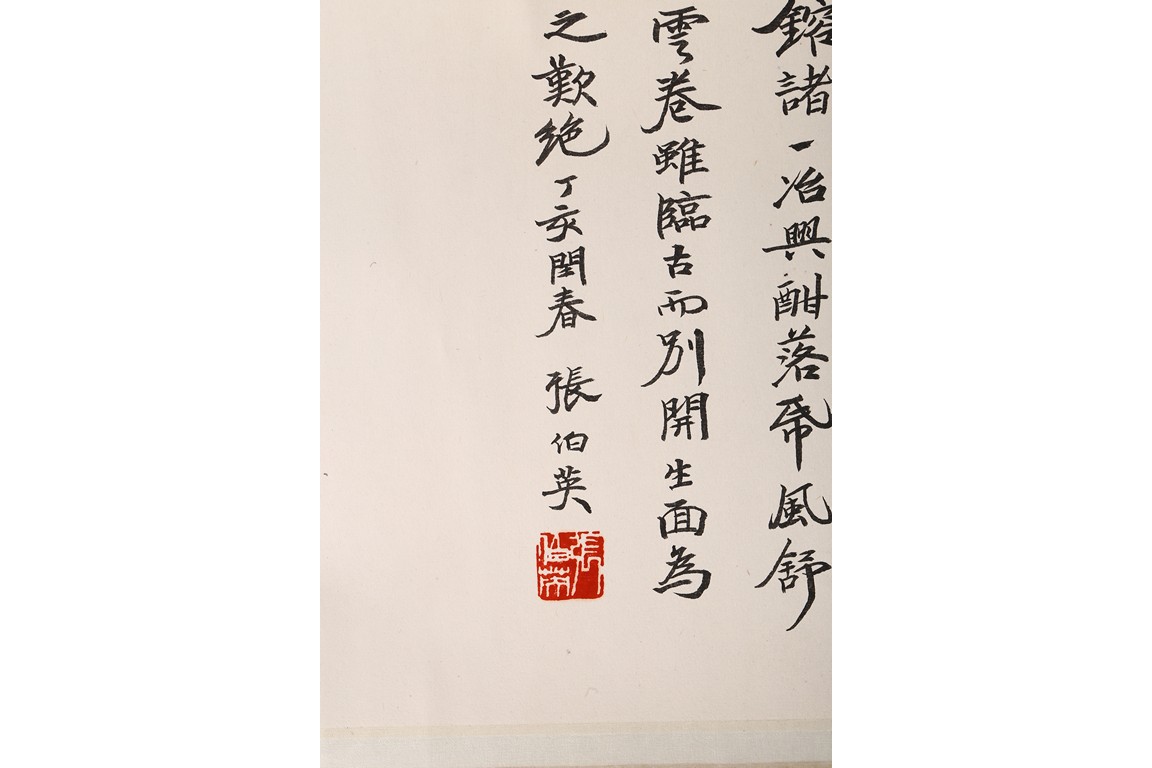 鎔諸一冶興酣落帋風舒
雲卷雖臨古而別開生面為
之歎絶丁亥閏春 張伯英
張伯英